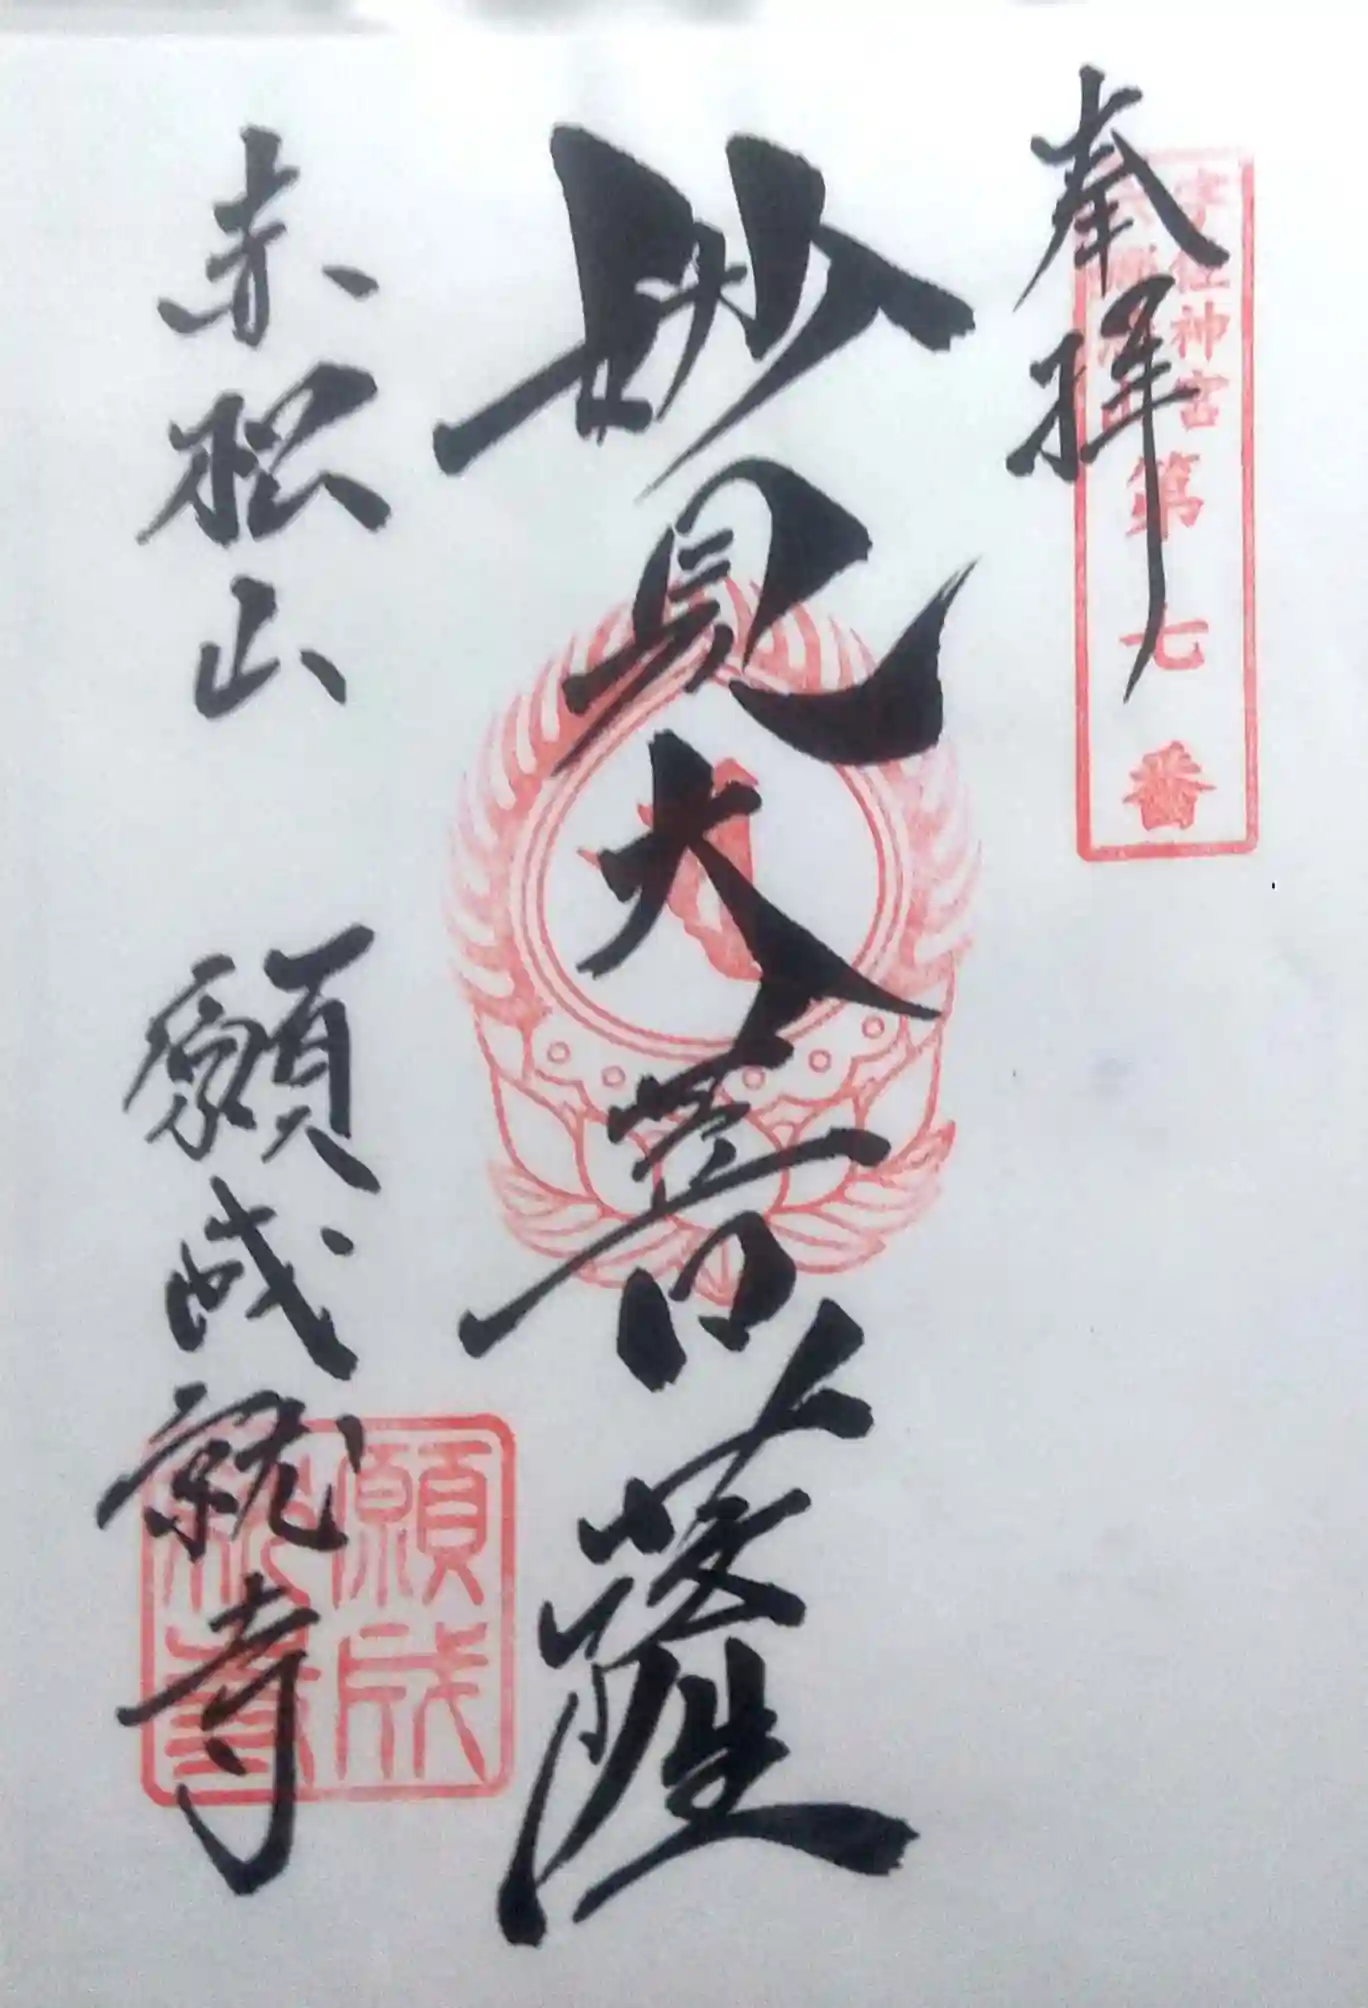 奉拝
神宮
第七番
妙見大菩薩
赤松山 願成就寺
願成就寺